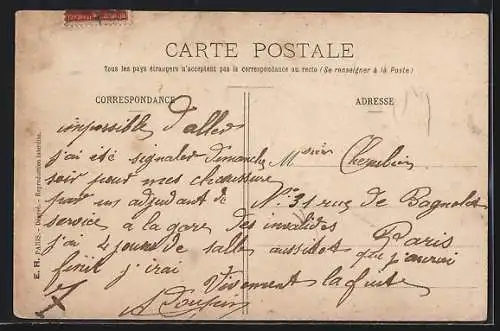 CARTE POSTALE
Tous les pays étrangers n'acceptent pas la correspondance au recto (Se renseigner à la Poste)
CORRESPONDANCE
ADRESSE
impossible d'aller
j'ai été signaler dimanche
soir pour mes chaussure
par un adjudant de
service a la gare des invalides
j'ai 4 jours de salle aussitot que j'aurai
finit j'irai
Vivement la fuite
Monsieur
N° 31 rue de Bagnolet
Paris
E. H. PARIS. - Déposé. - Reproduction interdite.